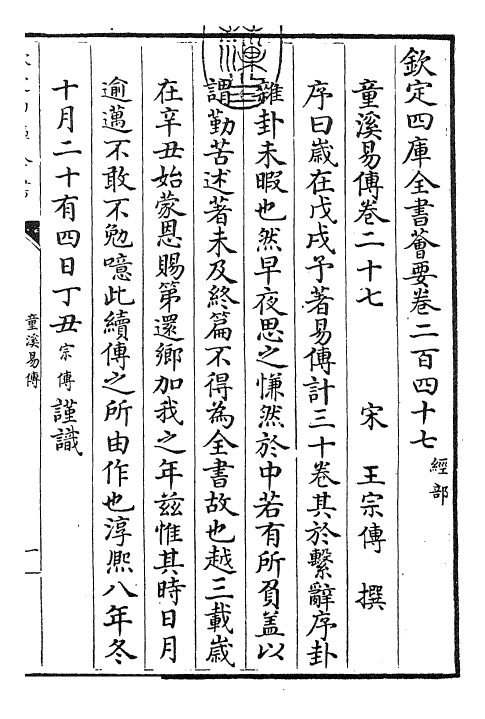 欽定四庫全書薈要卷二百四十七 經部
童溪易傳卷二十七 宋 王宗傳 撰
序曰歳在戊戌予著易傳計三十卷其於繫辭序卦
雜卦未暇也然早夜思之慊然於中若有所負盖以
謂勤苦述著未及終篇不得為全書故也越三載歳
在辛丑始蒙恩賜第還鄉加我之年兹惟其時日月
逾邁不敢不勉噫此續傳之所由作也淳熈八年冬
十月二十有四日丁丑宗傳謹識
童溪易傳
一